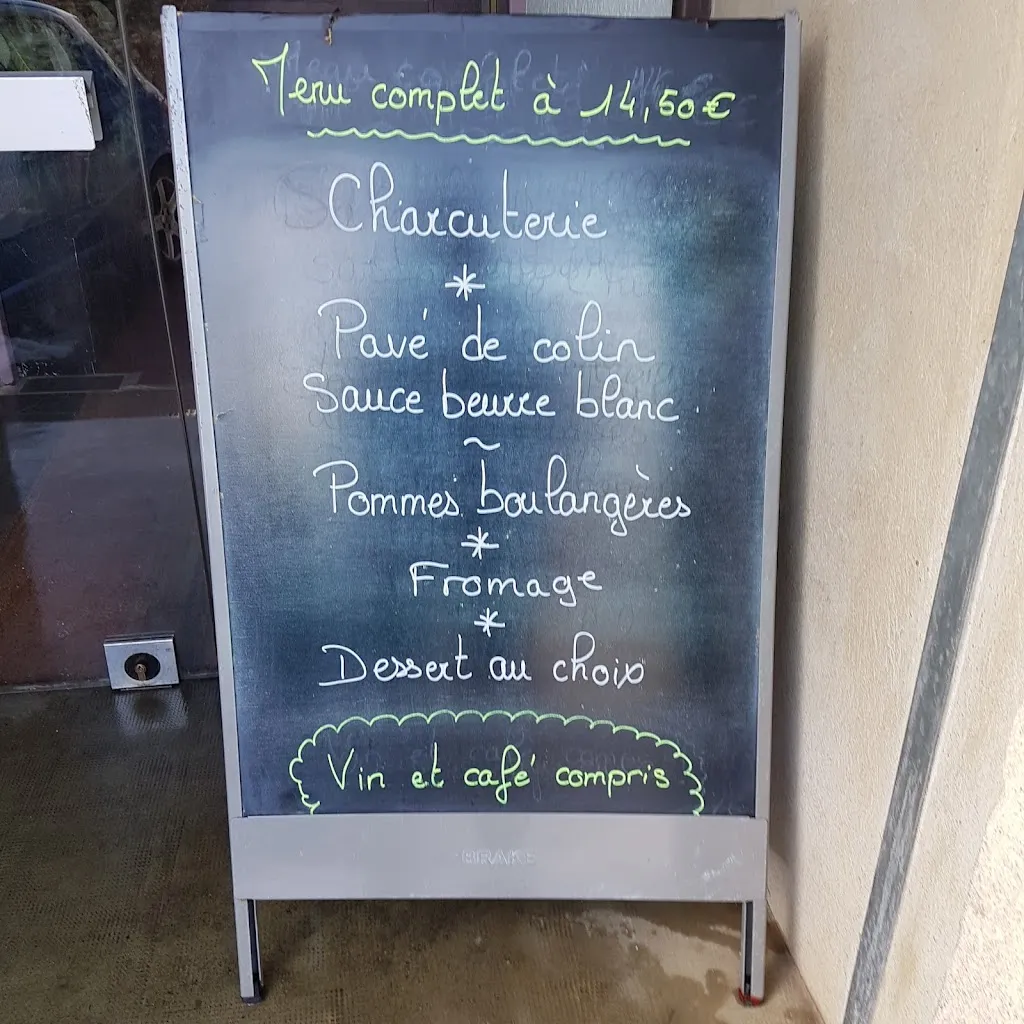 Menu complet à 14,50€
Charcuterie
*
Pavé de colin
Sauce beurre blanc.
~
Pommes boulangères
*
Fromage
*
Dessert au choix
Vin et café compris
BRAKE